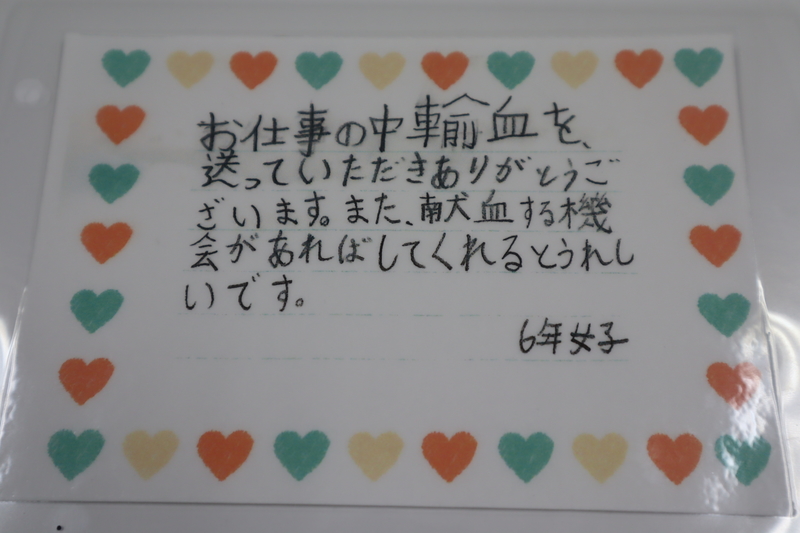 お仕事の中輸血を、
送っていただきありがとうご
ざいます。また、献血する機
会があればしてくれるとうれし
いです。
6年女子